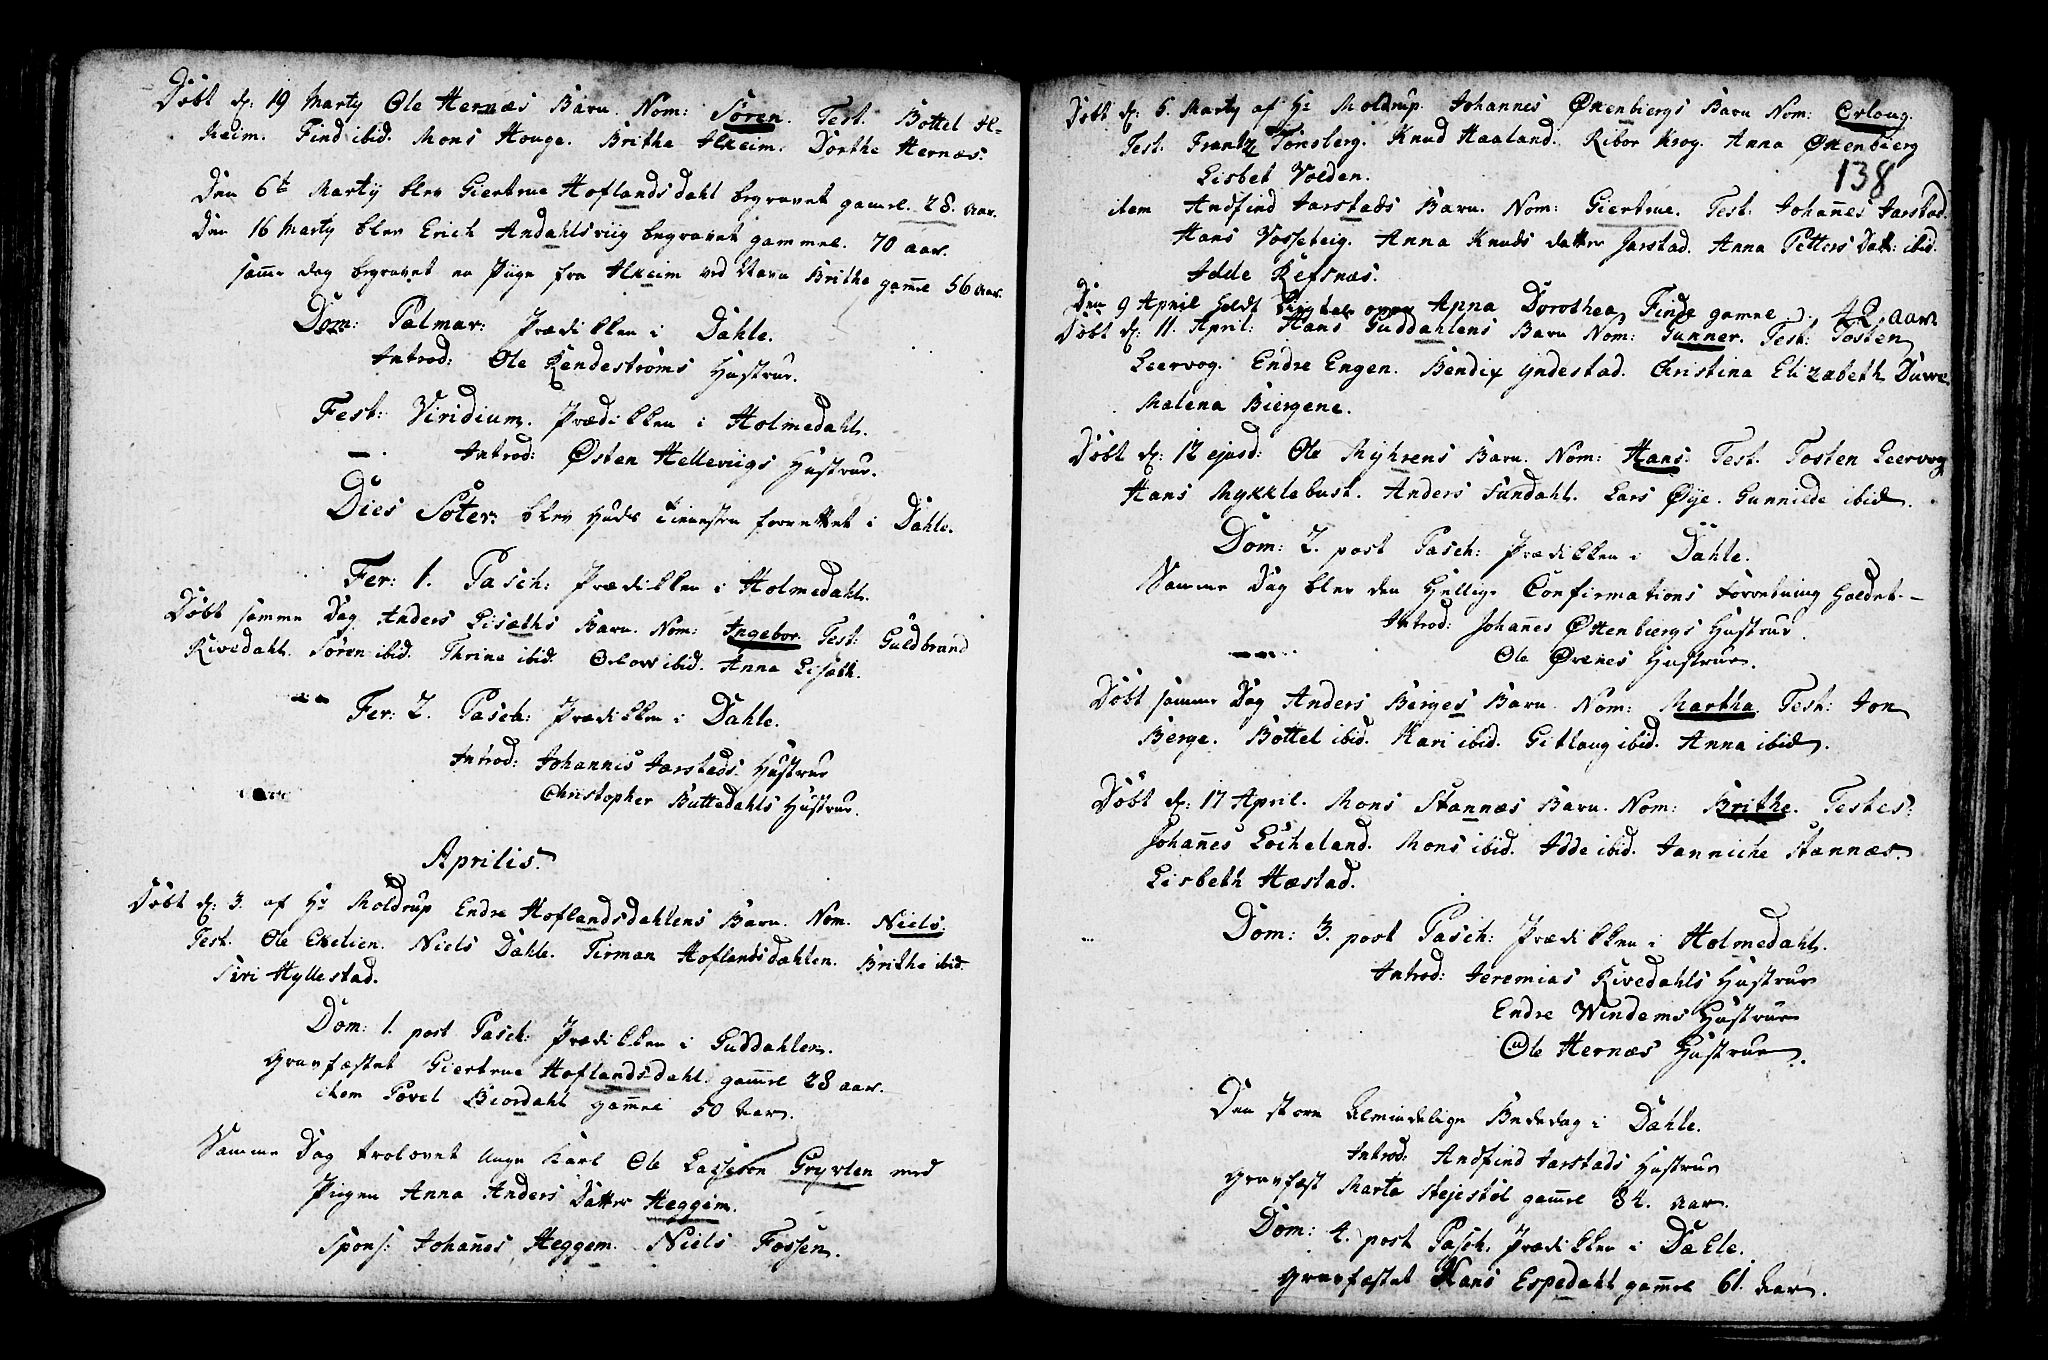 Döbt d: 19 Marty Ole Hernæs Barn. Nom: Sören. Test. Bottel Al-
keim. Find ibid. Mons Houge. Brithe Alkeim. Dorthe Hernæs.
Den 6te Martij blev Giertrue Hoflandsdahl begravet gamel. 28. aar.
Den 16 Marty blev Erich Andahlsviig begravet gammel. 70 aar.
samme dag begravet en Piige fra Alkeim ved Navn Brithe gam̄el 56 aar.
Dom: Palmar: Prædikken i Dahle.
Introd: Ole Rendeströms Hustrue.
Fest: Viridium. Prædikken i Holmedahl.
Introd: Østen Helleviigs Hustrue.
Dies Söter: blev Guds Tienesten forrettet i Dahle.
Fer: 1. Pasch: Prædikken i Holmedahl.
Döbt samme Dag Anders Lisæths Barn. Nom: Ingebor. Test: Guldbrand
Rivedahl. Sören ibid. Thrine ibid. Orlow ibid. Anna Lisæth.
Fer: 2. Pasch: Prædikken i Dahle.
Introd: Johannis Jarstads Hustrue
Christopher Buttedahls Hustrue.
Aprilis.
Döbt d: 3. af Hr Moldrup Endre Hoflandsdahlens Barn. Nom. Niels.
Test. Ole Eketien. Niels Dahle. Tirman Hoflandsdahlen. Brithe ibid.
Siri Hyllestad.
Dom: 1. post Pasch: Prædikken i Guddahlen.
Gravfæstet Giertrue Hoflandsdahl. gam̄el 28 aar.
item Povel Biordahl gam̄el 50 Aar.
Samme Dag trolovet Unge Karl Ole Lasseson Gryten med
Piigen Anna Anders Datter Heggem.
Spons: Johan̄es Heggem. Niels Fossen.
Döbt d: 6. Marty af Hr Moldrup. Johannes Øttenbiergs Barn Nom: Orloug.
Test. Frantz Tönsberg. Knud Haaland. Ribor Krog. Anna Øttenbierg
138
Lisbet Volden.
item Andfind Jarstads Barn. Nom: Giertrue. Test: Johan̄es Jarstad.
Hans Vosseteig. Anna Knuds datter Jarstad. Anna Petters Datt: ibid.
Adde Refsnæs.
Den 9 April holdt Liigtale over Anna Dorothea Finde gamel 42 aar
Döbt d: 11. April: Hans Guddahlens Barn Nom: Gunner. Test: Tosten
Leervog. Endre Engen. Bendix Yndestad. Christina Elizabeth Duwe
Malena Biergene.
Döbt d: 12 ejusd: Ole Myhrens Barn. Nom: Hans. Test. Tosten Leervog
Hans Mykklebust. Anders Sundahl. Lars Øye. Gunnilde ibid.
Dom: 2. post Pasch: Prædikken i Dahle.
Samme Dag blev den Hellige Confirmations Forretning holdet.
Introd: Johan̄es Øttenbiergs Hustrue.
Ole Ørenes Hustrue.
Döbt samme Dag Anders Berges Barn. Nom: Martha. Test: Jon
Berge. Bottel ibid. Kari ibid. Gitloug ibid. Anna ibid.
Döbt d: 17 April. Mons Stannæs Barn. Nom: Brithe. Testes:
Johan̄es Löcheland. Mons ibid. Adde ibid. Janniche Stannæs.
Lisbeth Hæstad.
Dom: 3. post Pasch: Prædikken i Holmedahl.
Introd: Jeremias Rivedahls Hustrue
Endre Windems Hustrue
Ole Hernæs Hustrue.
Den store Almindelige Bededag i Dahle.
Introd: Andfind Jarstads Hustrue
Gravfæst Marta Stejestöl gam̄el 84. aar.
Dom: 4. post Pasch. Prædikken i Dahle.
Gravfæstet Hans Espedahl gam̄el 61. Aar.